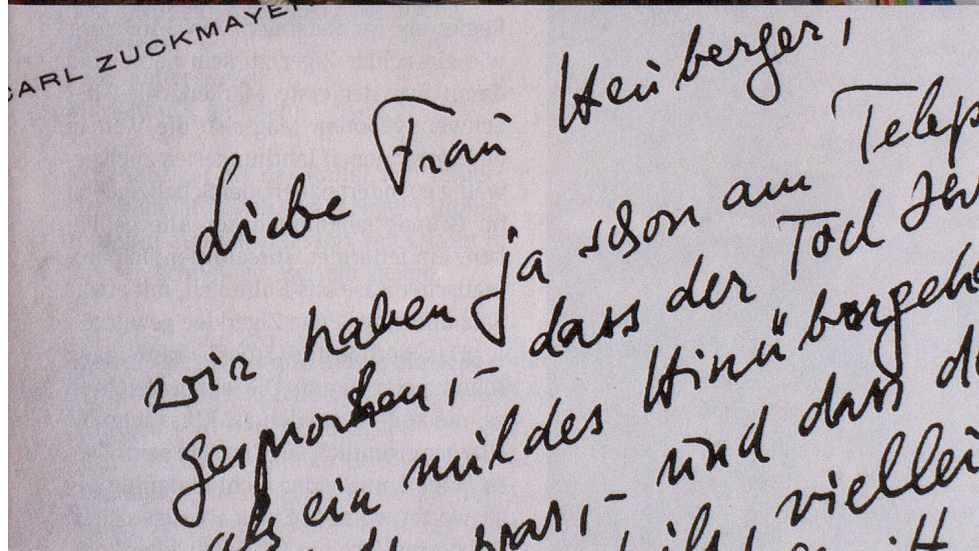 CARL ZUCKMAYER
Liebe Frau Heuberger,
wir haben ja schon am Telep
gesprochen, – dass der Tod
als ein mildes Hinübergeh
war, – und dass d
viellei